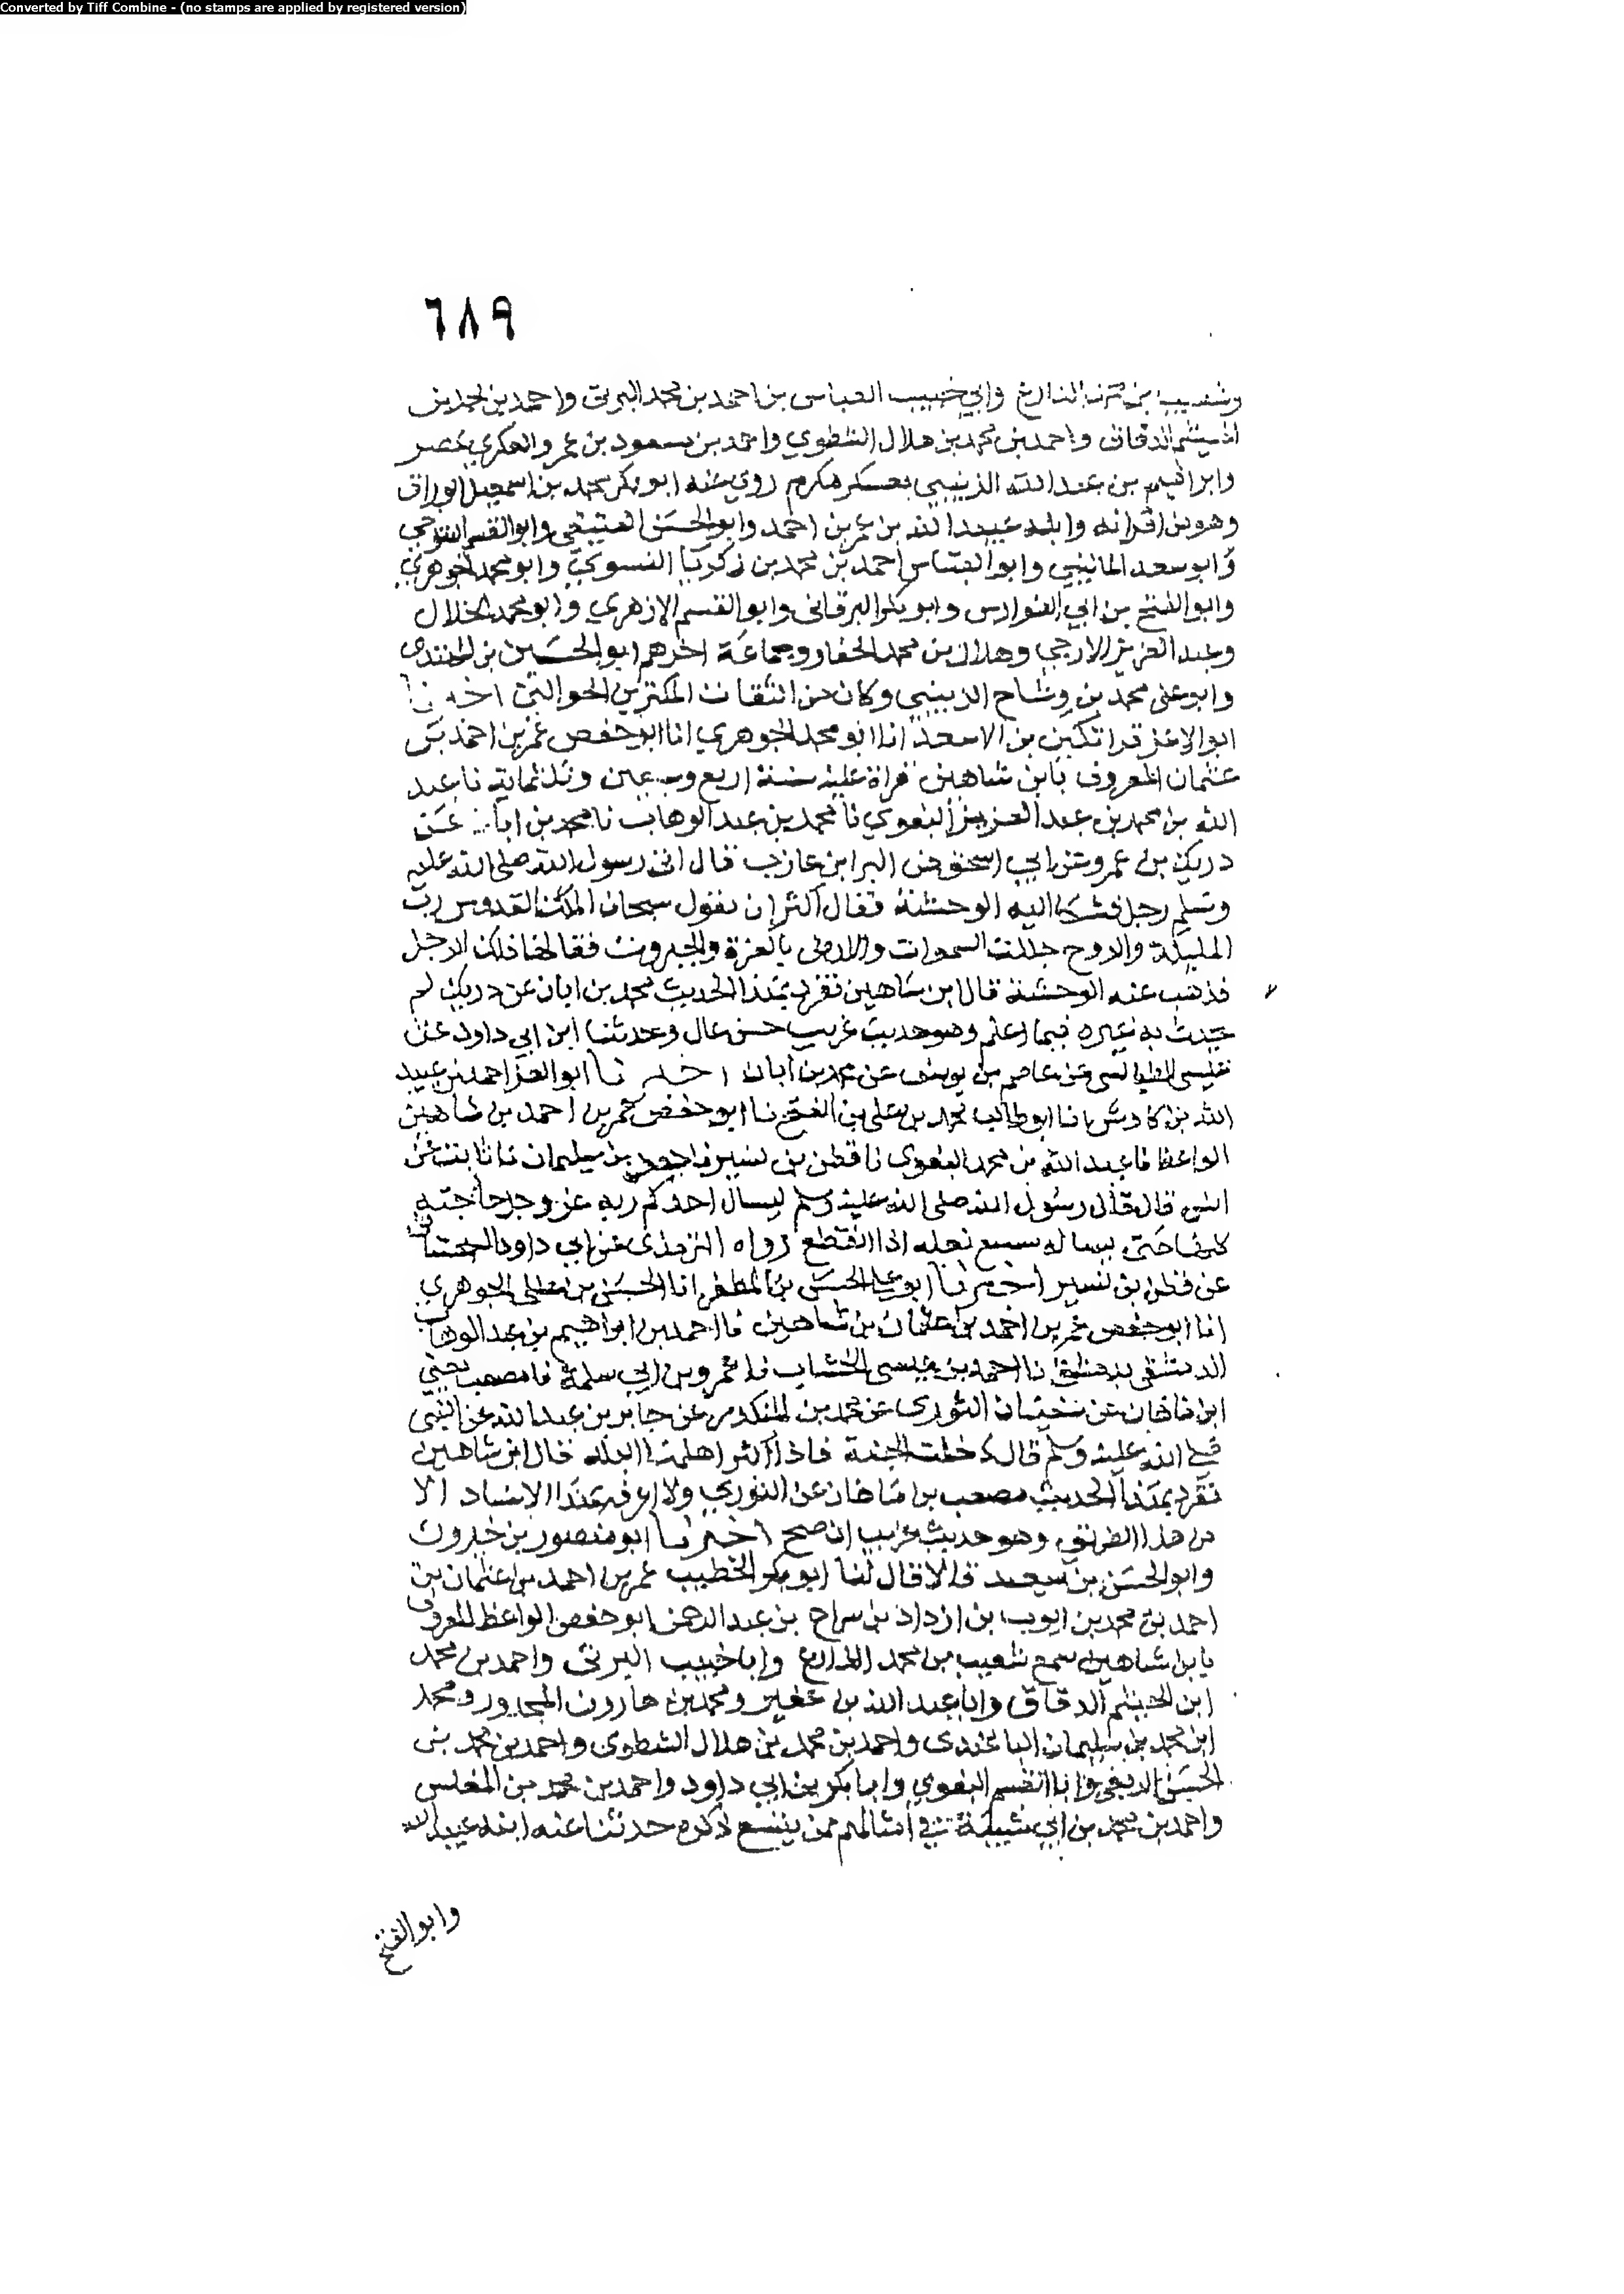 Converted by Tiff Combine - (no stamps are applied by registered version)
٦٨٩
وشعيب بن محمد الذارع وابي خبيب العباس بن احمد بن محمد البرتى واحمد بن محمد بن
الهيثم الدقاق واحمد بن محمد بن هلال الشطوي واحمد بن مسعود بن عمرو العكري بمصر
وابراهيم بن عبد الله الزينبي بعسكر مكرم روى عنه ابو بكر محمد بن اسمعيل الوراق
وهو من اقرانه وابنه عبيد الله بن عمر بن احمد وابو الحسن العتيقي وابو القسم التنوخي
وابو سعد الماليني وابو العباس احمد بن محمد بن زكريا النسوي وابو محمد الجوهري
وابو الفتح بن ابي الفوارس وابو بكر البرقانى وابو القسم الازهري وابو محمد الخلال
وعبد العزيز الازجي وهلال بن محمد الحفار وجماعة اخرهم ابو الحسين بن المهتدى
وابو على محمد بن وشاح الزينبي وكان من الثقات المكثرين الجوالين اخبرنا
ابو الاعز قراتكين بن الاسعد انا ابو محمد الجوهري انا ابو حفص عمر بن احمد بن
عثمان المعروف بابن شاهين قراة عليه سنة اربع وسبعين وثلثماية نا عبد
الله بن محمد بن عبد العزيز البغوي نا محمد بن عبد الوهاب نا محمد بن ابان عن
دريك بن عمرو عن ابي اسحق عن البرا بن عازب قال اتى رسول الله صلى الله عليه
وسلم رجل فشكا اليه الوحشة فقال اكثر ان تقول سبحان الملك القدوس رب
المليكة والروح جللت السموات والارض بالعزة والجبروت فقالها ذلك الرجل
فذهب عنه الوحشة قال ابن شاهين تفرد بهذا الحديث محمد بن ابان عن دريك لم
يحدث به غيره فيما اعلم وهو حديث غريب حسن عال وحدثنا ابن ابي داود عن
الطيالسى عن عاصم بن يوسف عن محمد بن ابان اخبرنا ابو العز احمد بن عبيد
الله بن كادش انا ابو طالب محمد بن على بن الفتح نا ابو حفص عمر بن احمد بن شاهين
الواعظ نا عبد الله بن محمد البغوى نا قطن بن نسير نا جعفر بن سليمان نا ثابت عن
انس قال قال رسول الله صلى الله عليه وسلم ليسال احدكم ربه عز وجل حاجته
كلها حتى يساله شسع نعله اذا انقطع رواه الترمذى عن ابي داود السجستاني
عن قطن بن نسير اخبرنا ابو على الحسن بن المظفر انا الحسن بن على الجوهري
انا ابو حفص عمر بن احمد بن عثمان بن شاهين نا احمد بن ابراهيم بن عبد الوهاب
الدمشقى بدمشق نا احمد بن عيسى الخشاب نا عمرو بن ابي سلمة نا مصعب يعني
ابن ماهان عن سفيان الثورى عن محمد بن المنكدر عن جابر بن عبد الله عن النبي
صلى الله عليه وسلم قال دخلت الجنة فاذا اكثر اهلها البله قال ابن شاهين
تفرد بهذا الحديث مصعب بن ماهان عن الثوري ولا اعرفه بهذا الاسناد الا
من هذا الطريق وهو حديث غريب ان صح اخبرنا ابو منصور بن خيرون
وابو الحسن بن سعيد قالا قال لنا ابو بكر الخطيب عمر بن احمد بن عثمان بن
احمد بن محمد بن ايوب بن ازداذ بن سراح بن عبد الرحمن ابو حفص الواعظ المعروف
بابن شاهين سمع شعيب بن محمد الذارع وابا خبيب البرتى واحمد بن محمد
ابن الهيثم الدقاق وابا عبد الله بن عفير ومحمد بن هارون المجدور ومحمد
ابن محمد بن سليمان الباغندى واحمد بن محمد بن هلال الشطوى واحمد بن محمد بن
الحسن وابا القسم البغوي وابا بكر بن ابي داود واحمد بن محمد بن المغلس
واحمد بن محمد بن ابي شيبة في امثالهم ممن يتسع ذكره حدثنا عنه ابنه عبيد الله
وابو الفتح